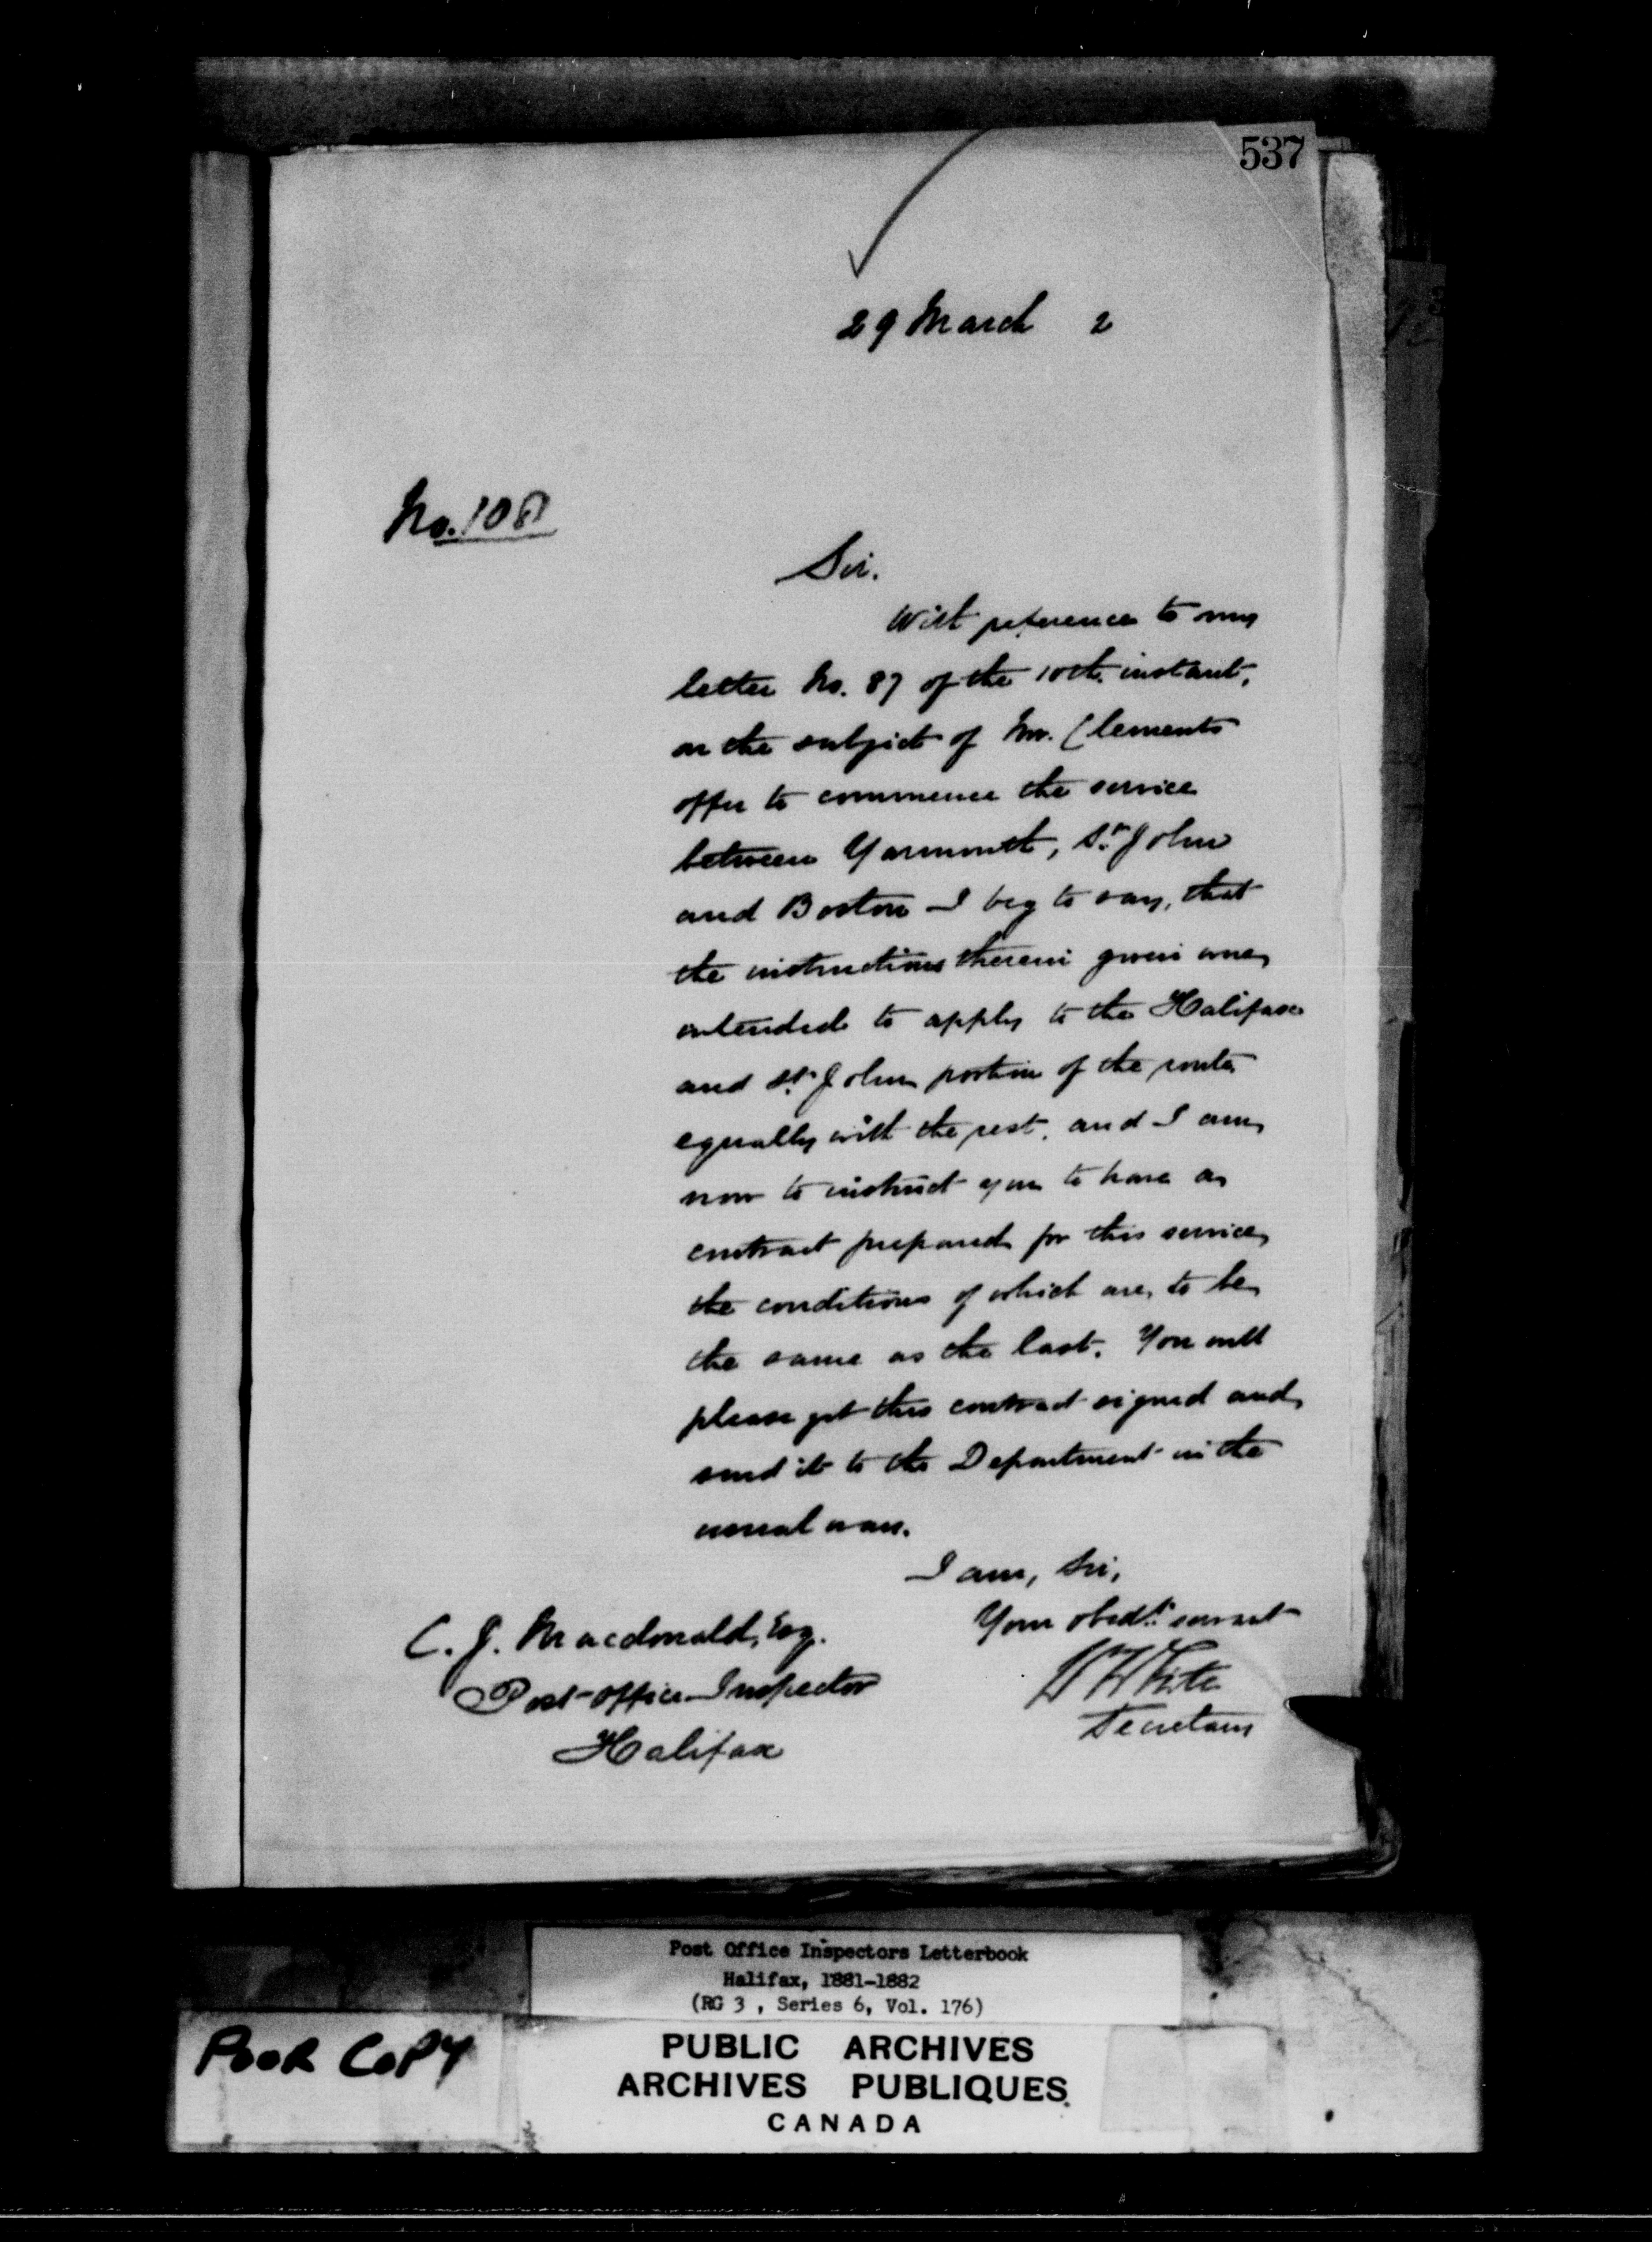 537
29 March 2
No. 108
Sir.
With reference to my
letter No. 87 of the 10th. instant,
on the subject of Mr. Clements
offer to commence the service
between Yarmouth, St. John
and Boston I beg to say, that
the instructions therein given were
intended to apply to the Halifax
and St. John portion of the route
equally with the rest, and I am
now to instruct you to have a
contract prepared for this service,
the conditions of which are, to be
the same as the last. You will
please get this contract signed and
send it to the Department in the
usual way.
I am, Sir,
Your obedt. servant
White
Secretary
C. J. Macdonald, Esq.
Post-office Inspector
Halifax
Post Office Inspectors Letterbook
Halifax, 1881-1882
(RG 3 , Series 6, Vol. 176)
POOR COPY
PUBLIC ARCHIVES
ARCHIVES PUBLIQUES
CANADA